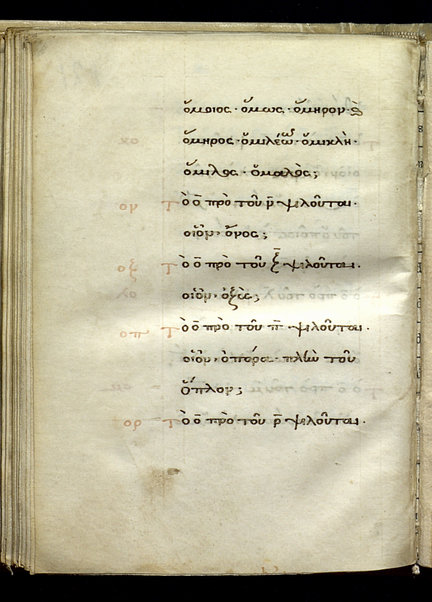 ὅμοιος · ὅμως · ὅμηρον · 
ὅμηρος · ὁμιλέω · ὁμίχλη ·
ὅμιλος · ὅμαλὸς ;
ον Τὸ ο̄ πρὸ τοῦ ν̄ ψιλοῦται ·
οἷον · ὄνος ;
οξ Τὸ ο̄ πρὸ τοῦ ξ̄ ψιλοῦται ·
οἷον · ὀξὺς ;
οπ Τὸ ο̄ πρὸ τοῦ π̄ ψιλοῦται ·
οἷον · ὀπώρα · πλὴν τοῦ
ὅπλον ;
ορ Τὸ ο̄ πρὸ τοῦ ρ̄ ψιλοῦται ·